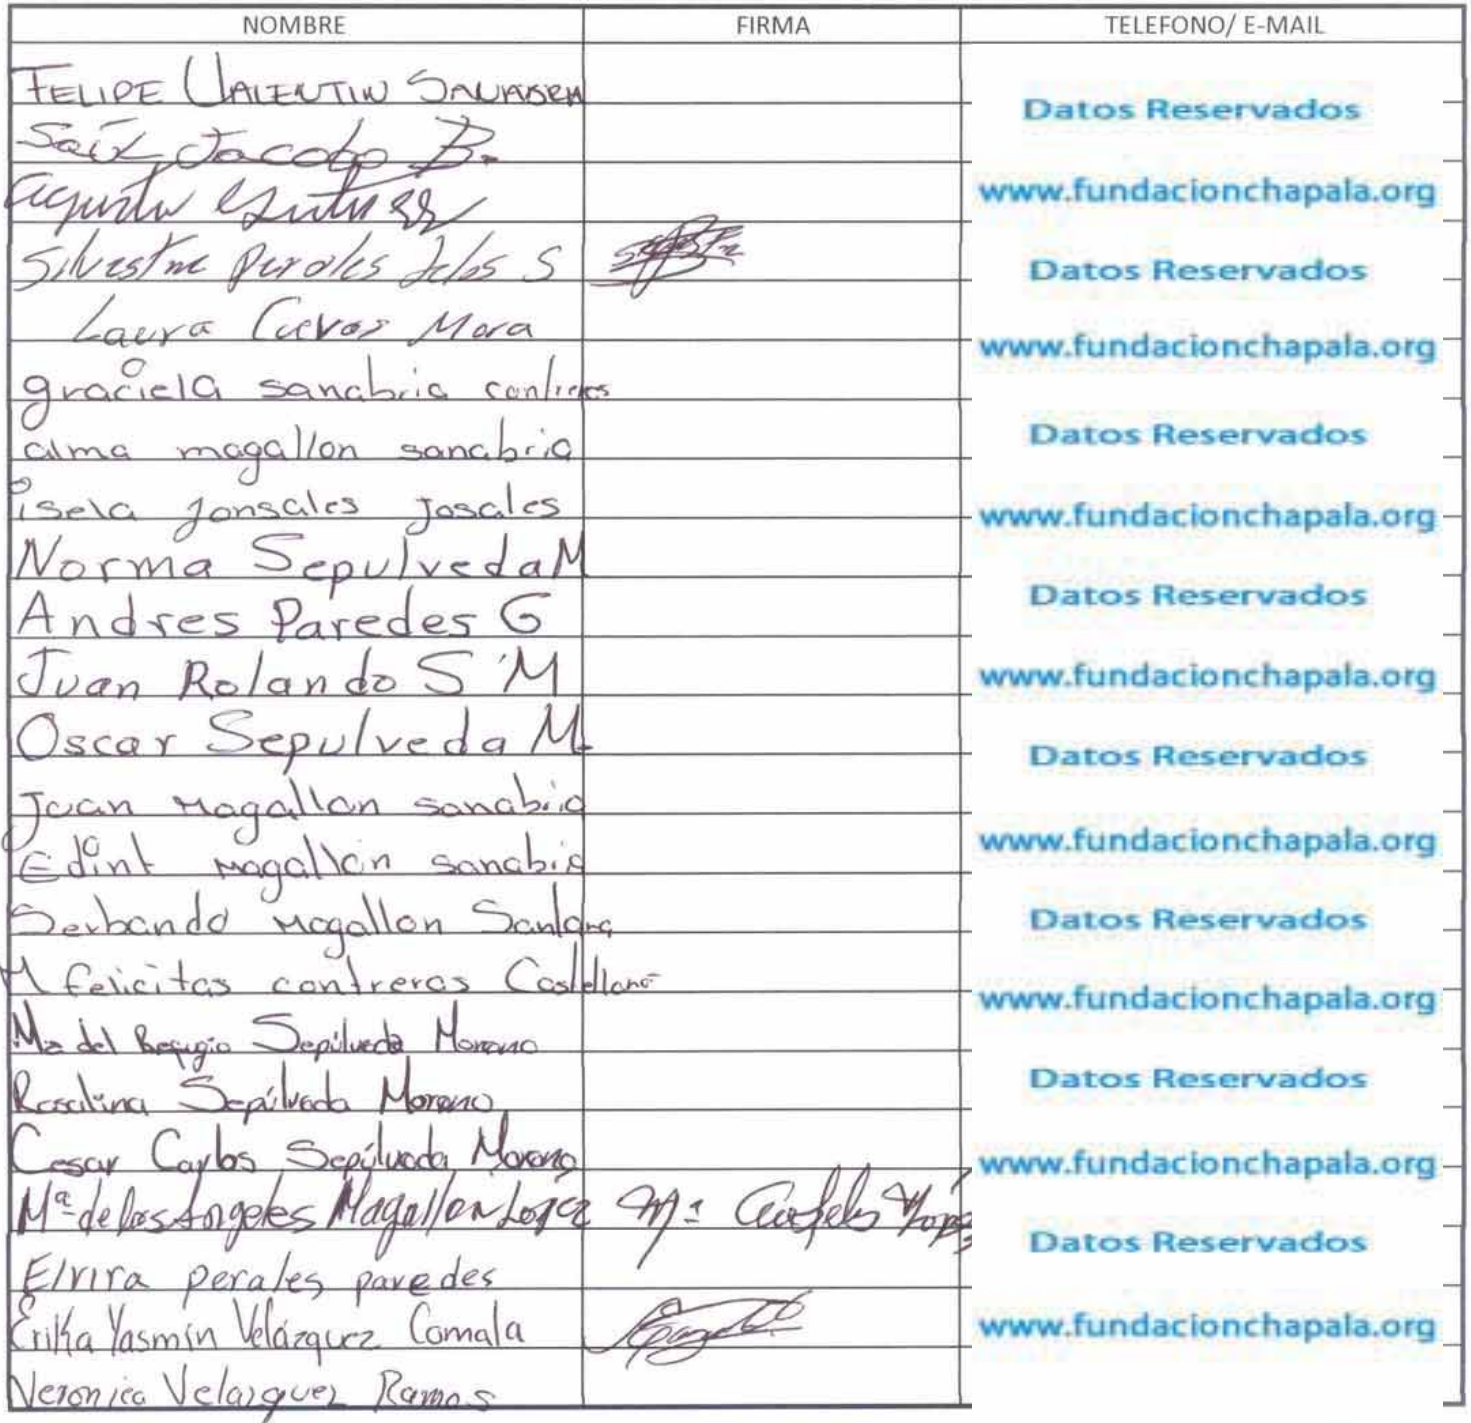 NOMBRE FIRMA TELEFONO/ E-MAIL
FELIPE VALENTIN
Datos Reservados
Saúl Jacobo B.
www.fundacionchapala.org
Silvestre perales delos S
Datos Reservados
Laura Cuevas Mora
www.fundacionchapala.org
graciela sanabria contreras
alma magallon sanabria
Datos Reservados
isela gonsales josales
www.fundacionchapala.org
Norma Sepulveda M
Datos Reservados
Andres Paredes G
Juan Rolando S M
www.fundacionchapala.org
Oscar Sepulveda M.
Datos Reservados
Juan Magallon sanabria
www.fundacionchapala.org
Edint Magallon sanabria
Serbando Magallon
Datos Reservados
M felicitas contreras Castellano
www.fundacionchapala.org
Ma del Refugio Sepúlveda Moreno
Rosalina Sepúlveda Moreno
Datos Reservados
Cesar Carlos Sepúlveda Moreno
www.fundacionchapala.org
Mª de los Angeles Magallon Lopez
Datos Reservados
Elvira perales paredes
Erika Yasmín Velázquez Comala
www.fundacionchapala.org
Veronica Velazquez Ramos